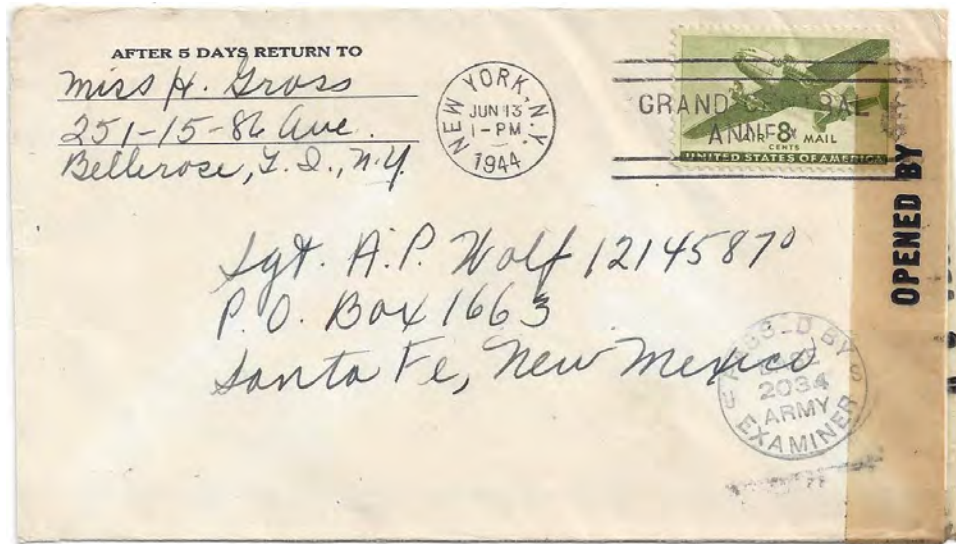 AFTER 5 DAYS RETURN TO
Miss H. Gross
251-15-86 Ave.
Bellerose, L. I., N.Y.
NEW YORK, N.Y.
JUN 13
1-PM
1944
GRAND CENTRAL
ANNEX
AIR 8 MAIL
CENTS
UNITED STATES OF AMERICA
OPENED BY
Sgt. A.P. Wolf 12145870
P.O. Box 1663
Santa Fe, New Mexico
BY
BASE
2034
ARMY
EXAMINER